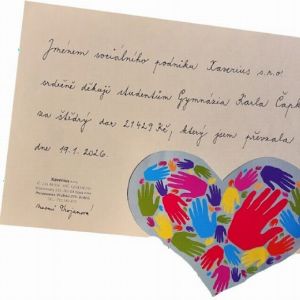 Jménem sociálního podniku Xaverius s.r.o.
srdečně děkuji studentům Gymnázia Karla Čapk
za štědrý dar 21429 Kč, který jsem převzala
dne 19.1.2026.
Xaverius s.r.o.